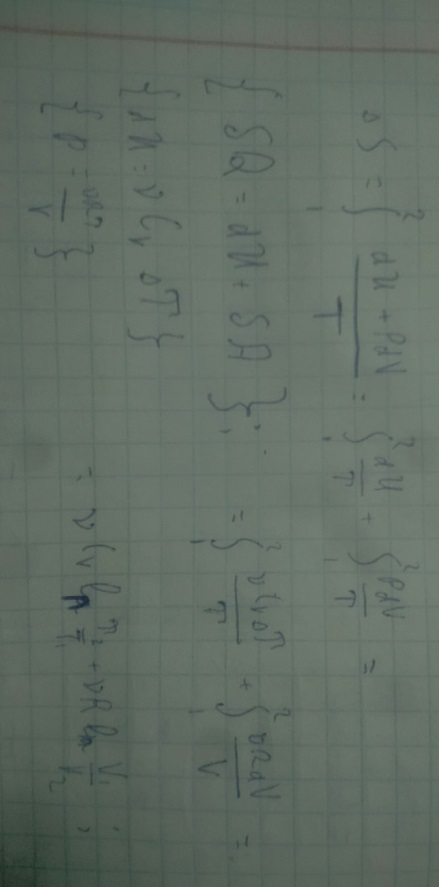 ΔS = ∫₁² (dU + PdV)/T = ∫₁² dU/T + ∫₁² PdV/T =
{ δQ = dU + δA }; = ∫₁² νCᵥdT/T + ∫₁² νRdV/V =
{ dU = νCᵥdT }
{ P = νRT/V } = νCᵥ ln T₂/T₁ + νR ln V₁/V₂ ;